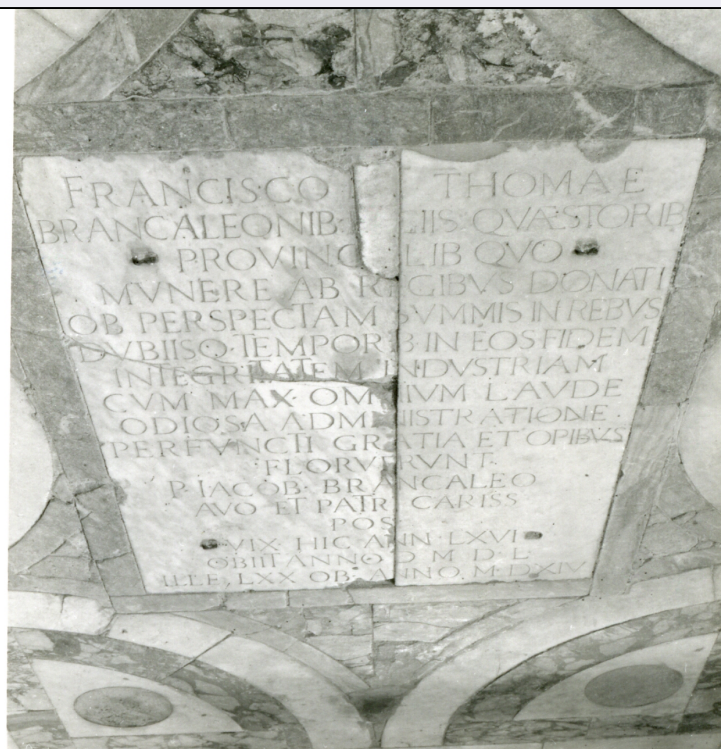 FRANCISCO THOMAE
BRANCALEONIB· LIIS·QVÆSTORIB
PROVINC LIB QVO
MVNERE AB REGIBVS DONATI
OB PERSPECTAM SVMMIS IN REBVS
DVBIISQ·TEMPORIB·IN EOS FIDEM
INTEGRITATEM INDVSTRIAM
CVM MAX·OMNIVM LAVDE
ODIOSA ADMINISTRATIONE·
PERFVNCTI GRATIA ET OPIBVS
FLORVERVNT·
P·IACOB·BRANCALEO
AVO ET PATRI CARISS
POS
VIX·HIC ANN·LXVI
OBIIT ANNO D M D L
ILLE·LXX OB·ANNO·M·D·XIV